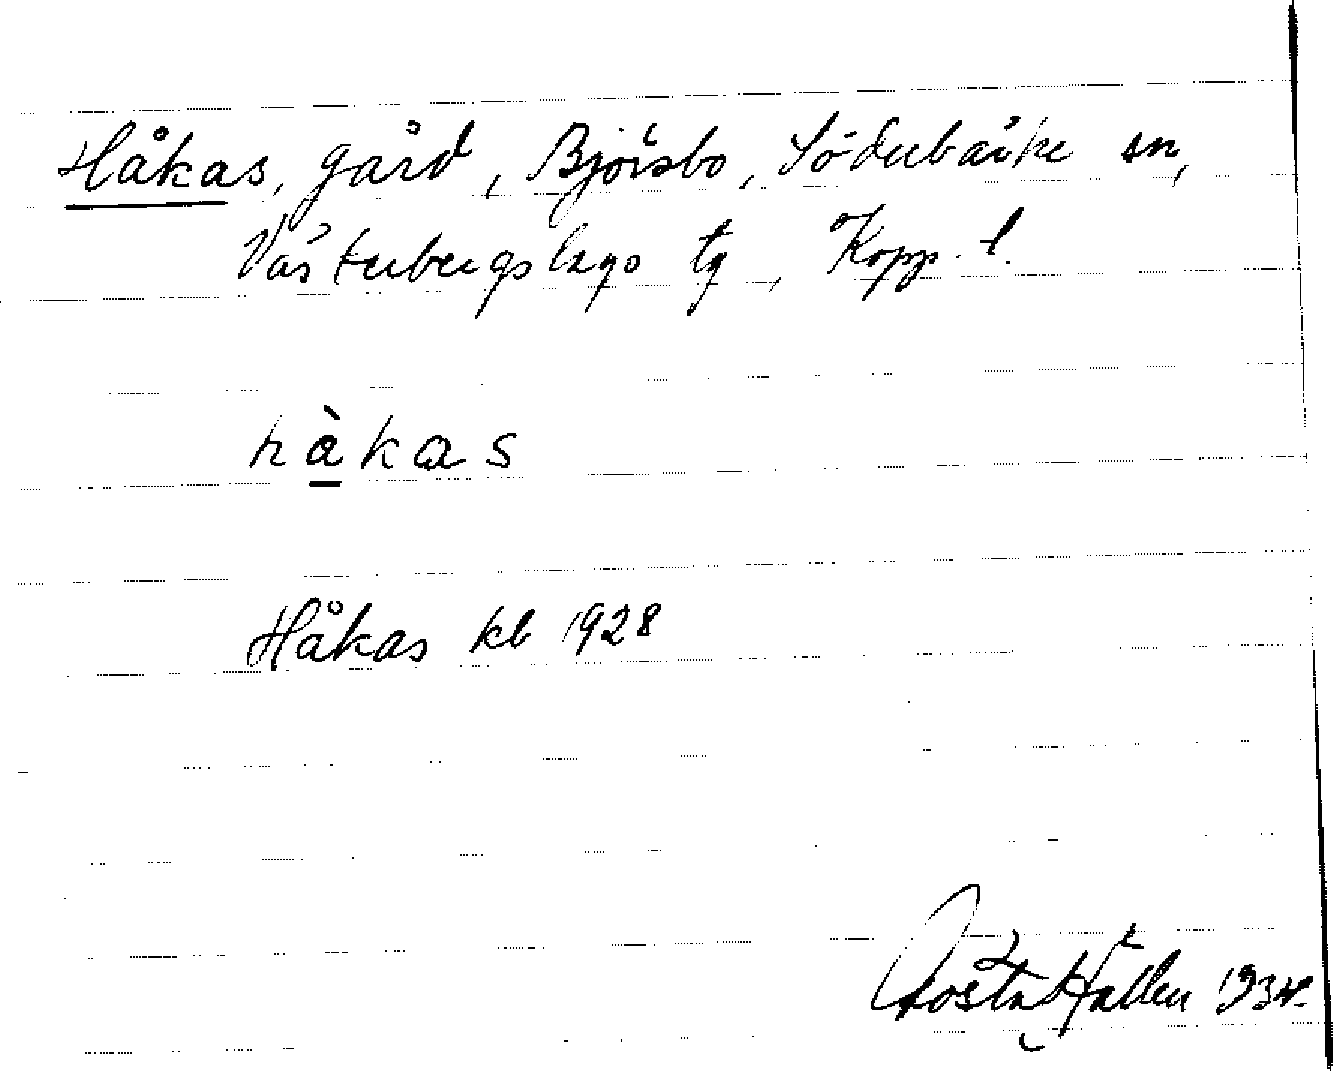 Håkas, gård, Bjørsbo, Söderbärke sn,
Västerbergslags tg, Kopp. l.
hàkas
Håkas kb 1928
Gösta Hållen 1934.